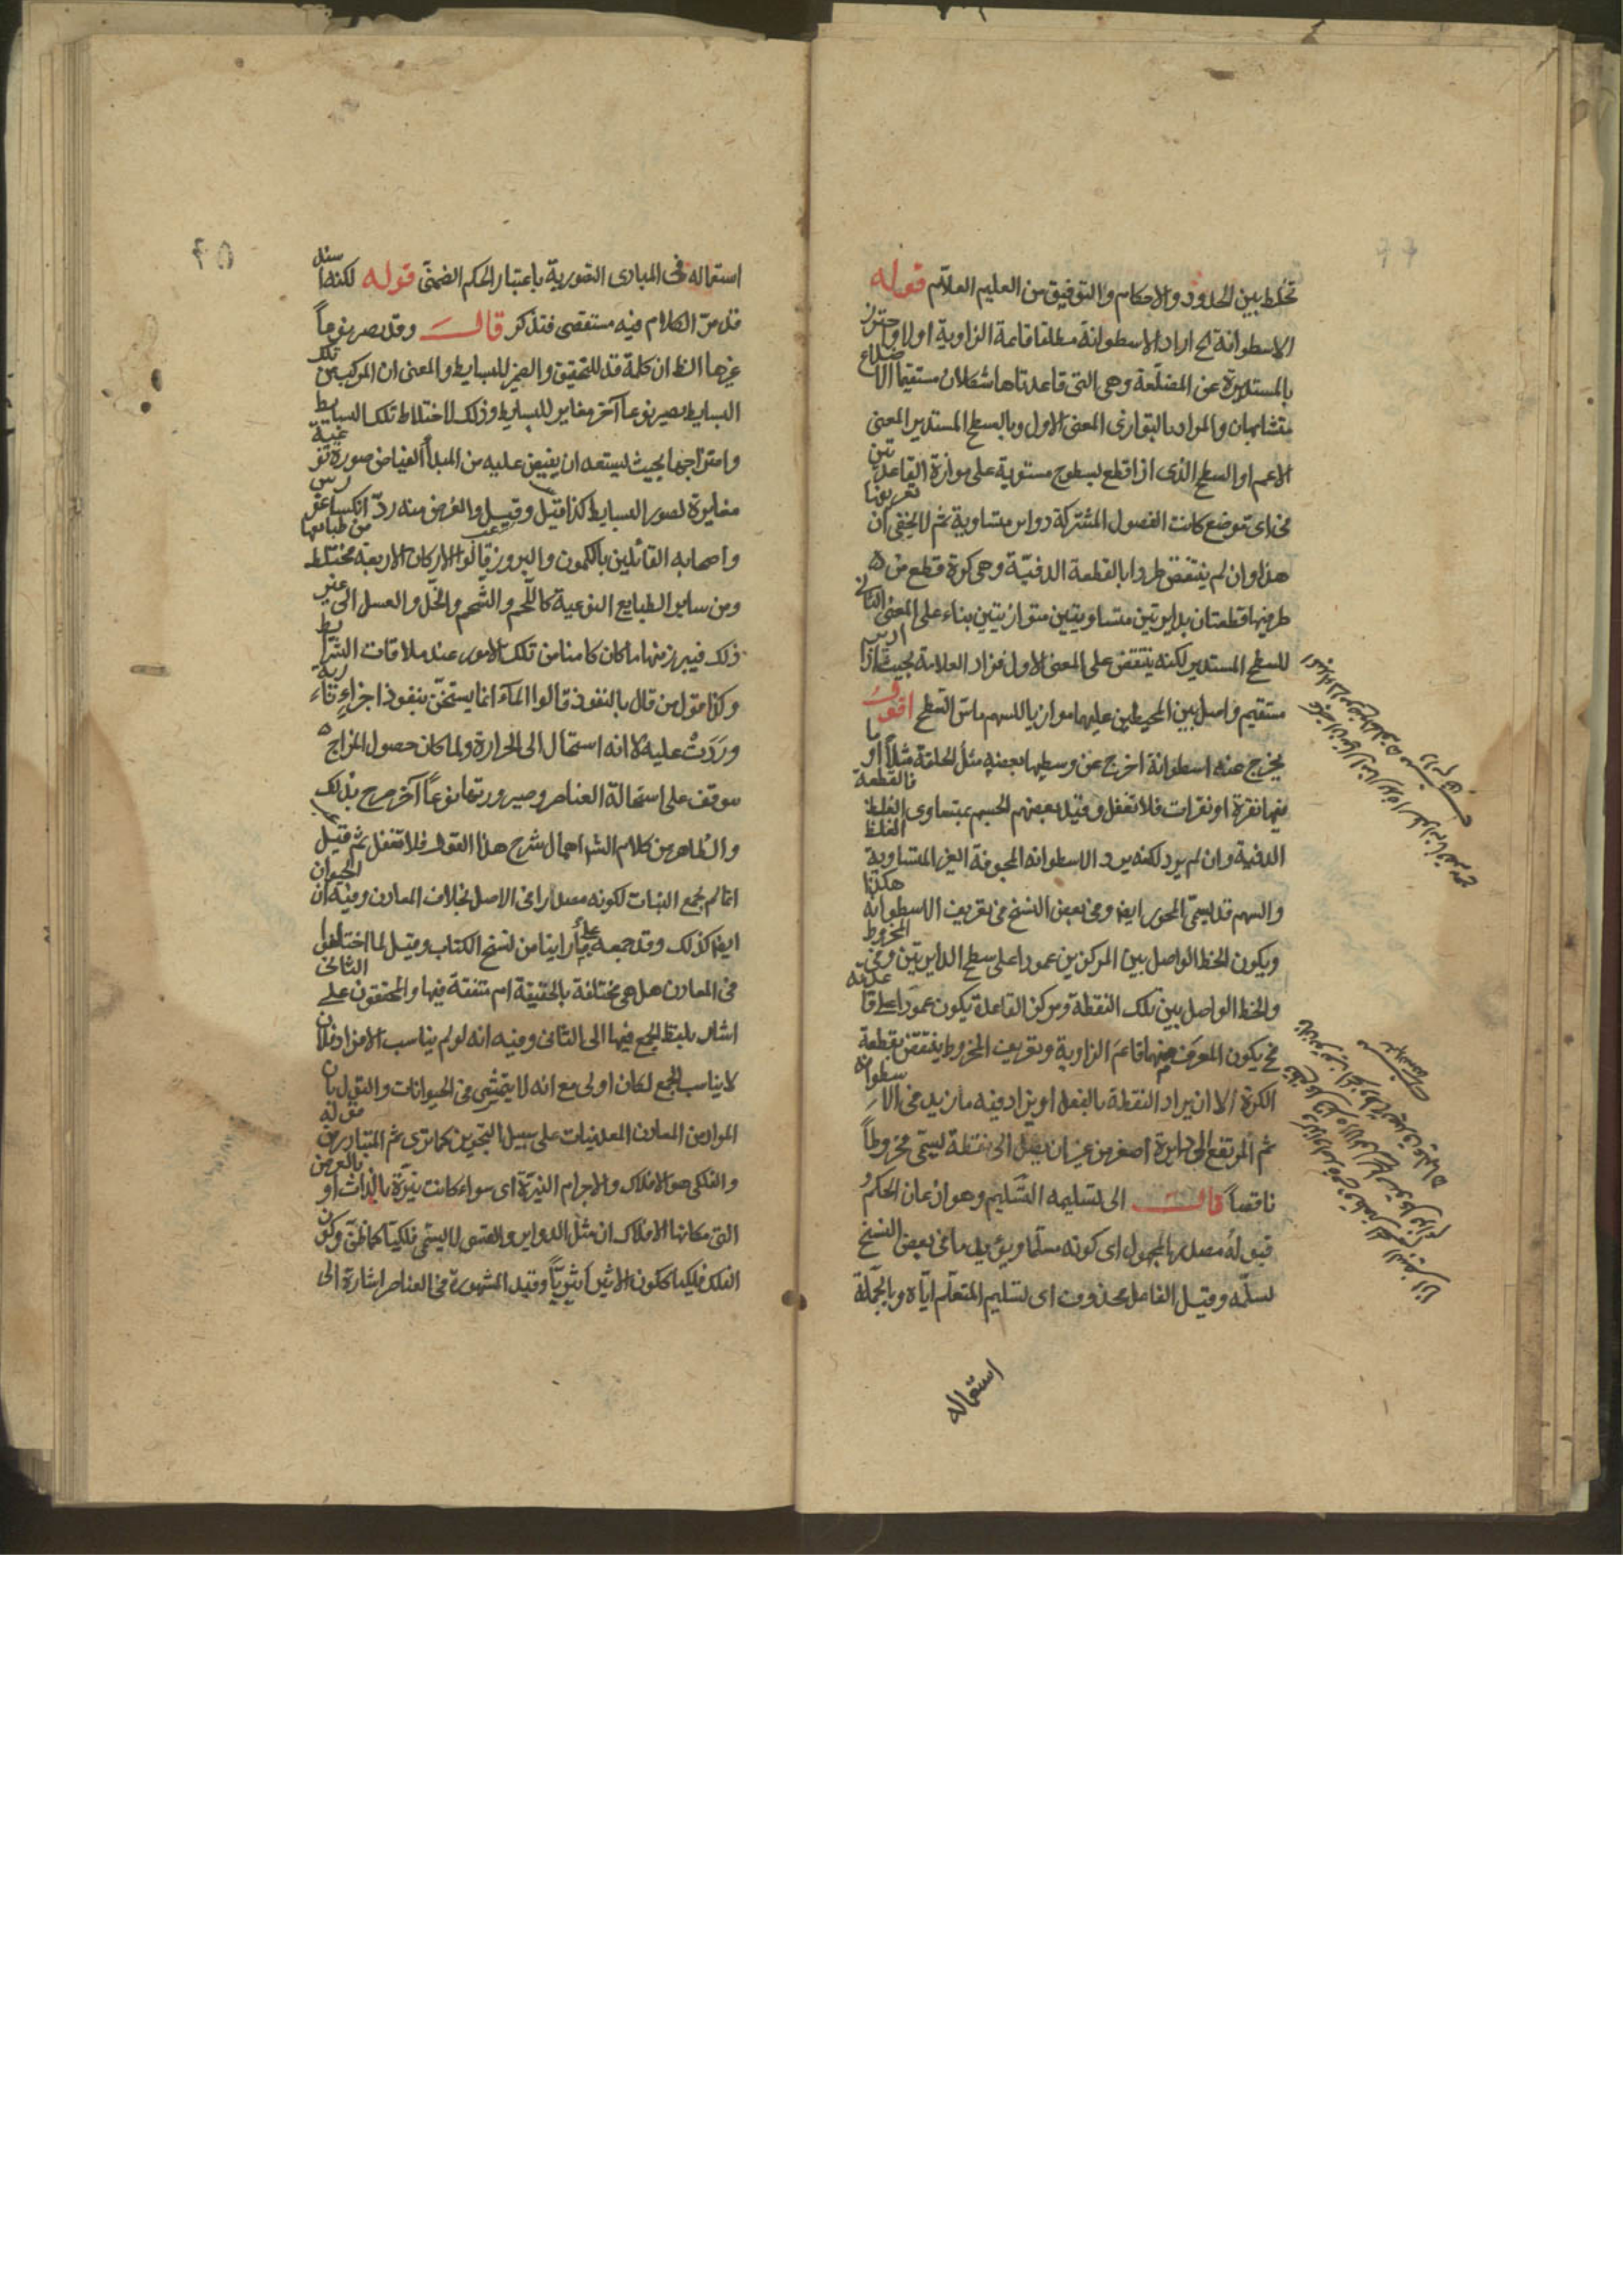 تخلط بين الحدود والاحكام والتوفيق من العليم العلام قوله
الاسطوانة الخ اراد الاسطوانة مطلقا قائمة الزاوية اولا واحترز
بالمستديرة عن المضلعة وهي التي قاعدتاها شكلان مستقيما الاضلاع
متشابهان والمراد بالتوازى المعنى الاول وبالسطح المستدير المعنى
الاعم او السطح الذى اذا قطع بسطوح مستوية على موازة القاعدتين
فى اى موضع كانت الفصول المشتركة دواير متساوية ثم لا يخفى ان تعريفنا
هذا وان لم ينتقض طردا بالقطعة الدفية وهى كرة قطع من
طرفيها قطعتان بدايرتين متساويتين متوازيتين بناء على المعنى الثانى
للسطح المستدير لكنه ينتقض على المعنى الاول فزاد العلامة بحيث اذا ادير
مستقيم واصل بين المحيطين عليهما موازيا للسهم ماس السطح اقول
يخرج عنه اسطوانة اخرج عن وسطها بعضه مثل الحلقة مثلا او ما
فيها نقرة او نقرات فلا تغفل وقيد بعضهم الجسم بمتساوى الغلظ فالقطعة
الدفية وان لم يرد لكنه يرد الاسطوانه المجوفة الغير المتساوية الغلظ
والسهم قد يسمى المحور ايضا وفى بعض النسخ فى تعريف الاسطوانه هكذا
ويكون الخط الواصل بين المركزين عمودا على سطح الدايرتين وفى المخروط
والخط الواصل بين تلك النقطة ومركز القاعدة يكون عمودا على قاعدته
فح يكون المعرف منهما قائم الزاوية وتعريف المخروط ينتقض بقطعة
الكرة الا ان يراد النقطة بالفعل او يزاد فيه ما زيد فى الاسطوانة
ثم المرتفع الى دايرة اصغر من غير ان يصل الى نقطة يسمى مخروطاً
ناقصاً قال الى تسليمه التسليم وهو اذعان الحكم و
قبوله مصدر المجهول اى كونه مسلما ويؤيده ما فى بعض النسخ
لسلمه وقيل الفاعل محذوف اى تسليم المتعلم اياه وبالجملة
استعماله
استعماله فى المبادى التصورية باعتبار الحكم الضمنى قوله لكنها
قد مر الكلام فيه مستقصى فتذكر قال وقد يصير نوعاً
غيرها الظ ان كلمة قد للتحقيق والضمير للبسايط والمعنى ان المركب من تلك
البسايط يصير نوعا آخر مغاير للبسايط وذلك لاختلاط تلك البسايط
وامتزاجها بحيث يستعد ان يفيض عليه من المبدأ الفياض صورة نوعية
مغايرة لصور البسايط كذا قيل وقيل والغرض منه رد انكساغورس
واصحابه القائلين بالكمون والبروز قالوا الاركان الاربعة مختلط من طبايعها
ومن ساير الطبايع النوعية كاللحم والشحم والخل والعسل الى غير
ذلك فيبرز منها ما كان كامنا من تلك الامور عند ملاقات الشرايط
وكذا قول من قال بالنفوذ قالوا الماء انما يستخن بنفوذ اجزاء نارية
وردت عليه لا انه استحال الى الحرارة ولما كان حصول المزاج
موقف على استحالة العناصر وصيرورتها نوعاً آخر صرح بذلك
والظاهر من كلام الش اهمال شرح هذا القول فلا تغفل ثم قيل
انما لم يجمع النبات لكونه مصدرا فى الاصل بخلاف المعادن وفيه ان الحيوان
ايضا كذلك وقد جمعه على ما راينا من نسخ الكتاب وقيل لما اختلفوا
فى المعادن هل هى مختلفة بالحقيقة ام متفقة فيها والمحققون على الثانى
اشار بلفظ الجمع فيها الى الثانى وفيه انه لو لم يناسب الافراد فلان
لا يناسب الجمع لكان اولى مع انه لا يتمشى فى الحيوانات والقول بان
المراد من المعادن المعدنيات على سبيل التجويز كما ترى ثم المتبادر من قوله
والفلكى هو الافلاك والاجرام النيرة اى سواء كانت نيرة بالذات او بالعرض
التى مكانها الافلاك اذ مثل الدواير والقسى لا يسمى فلكيا كما ظن وكون
الفلك فلكيا ككون الاثير اثيرياً وقيد المشهورة فى العناصر اشارة الى